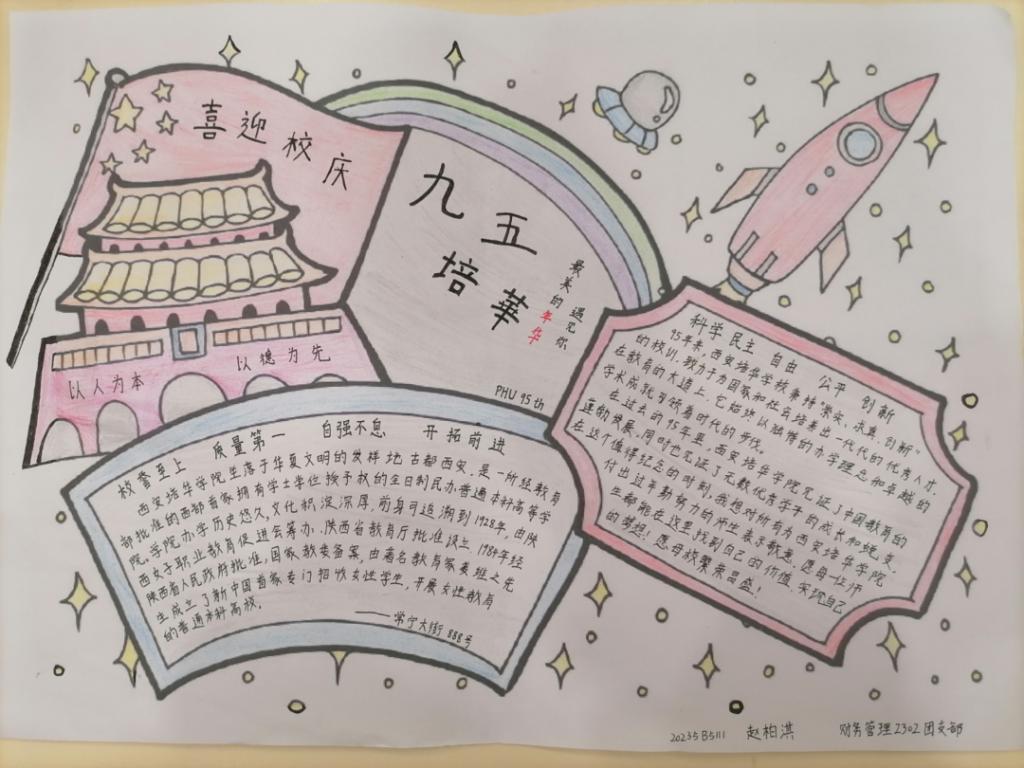 喜迎校庆
九五
培華
最美的年华
遇见你
PHU 95th
以人为本
以德为先
教学至上 质量第一 自强不息 开拓前进
西安培华学院坐落于华夏文明的发祥地古都西安,是一所经教育
部批准的西部首家拥有学士学位授予权的全日制民办普通本科高等学
院。学院办学历史悠久,文化积淀深厚,前身可追溯到1928年,由陕
西女子职业教育促进会筹办、陕西省教育厅批准设立.1984年经
陕西省人民政府批准,国家教委备案,由著名教育家姜维之先
生成立了新中国首家专门招收女性学生,开展女性教育
的普通本科高校。
——常宁大街888号
科学 民主 自由 公平 创新
95年来,西安培华学校秉持"崇实、求真、创新"
的校训,致力于为国家和社会培养出一代代的优秀人才.
在教育的大道上,它始终以独特的办学理念和卓越的
学术成就引领着时代的步伐。
在过去的95年里,西安培华学院见证了中国教育的
蓬勃发展,同时也见证了无数优秀学子的成长和蜕变.
在这个值得纪念的时刻,我想对所有为西安培华学院
付出过辛勤努力的师生表示敬意.愿每一位师
生都能在这里找到自己的价值,实现自己
的梦想!愿母校繁荣昌盛!
20235B5111 赵柏淇 财务管理2302团支部